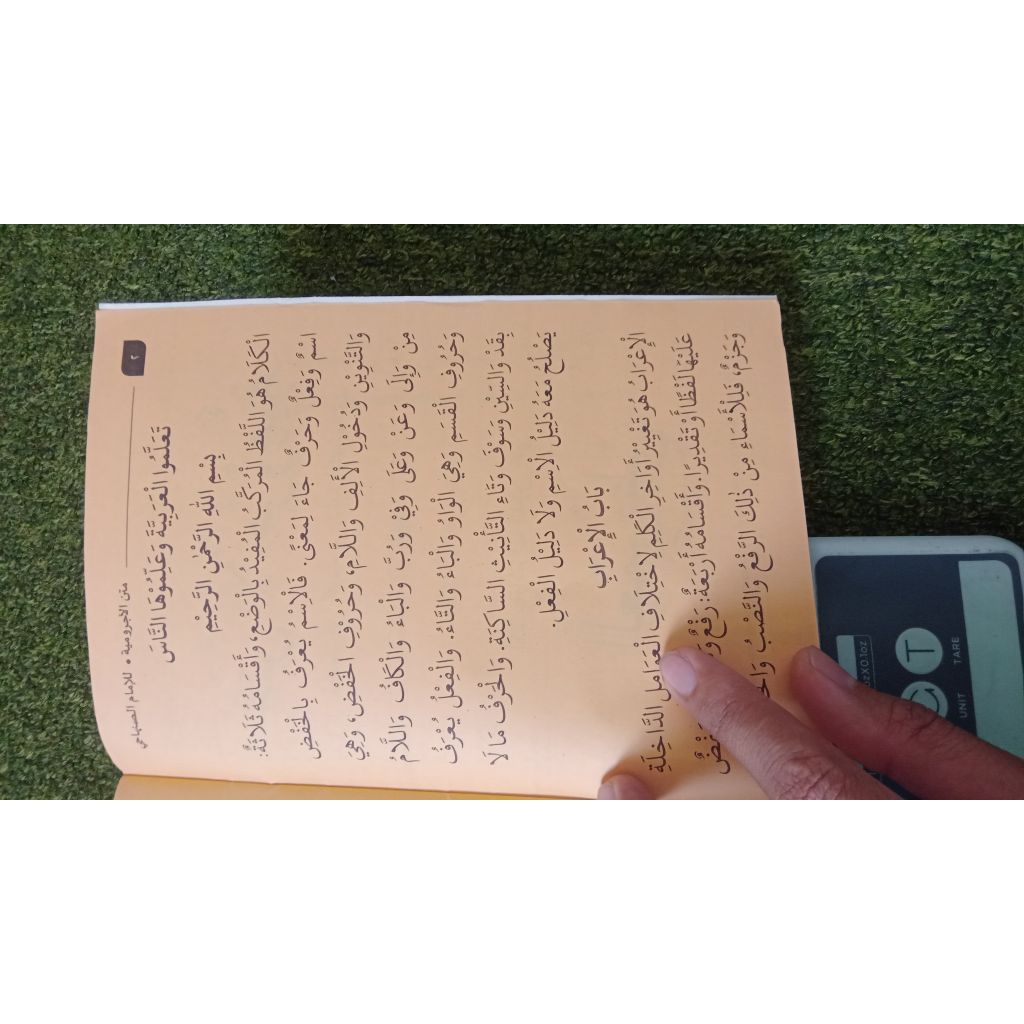 متن الاجرومية • للامام الصنهاجي
٢
تَعَلَّمُوا الْعَرَبِيَّةَ وَعَلِّمُوْهَا النَّاسَ
بِسْمِ اللهِ الرَّحْمٰنِ الرَّحِيْمِ
الْكَلَامُ هُوَ اللَّفْظُ الْمُرَكَّبُ الْمُفِيْدُ بِالْوَضْعِ، وَأَقْسَامُهُ ثَلَاثَةٌ:
اسْمٌ وَفِعْلٌ وَحَرْفٌ جَاءَ لِمَعْنًى. فَالْاِسْمُ يُعْرَفُ بِالْخَفْضِ
وَالتَّنْوِيْنِ وَدُخُوْلِ الْأَلِفِ وَاللَّامِ، وَحُرُوْفِ الْخَفْضِ، وَهِيَ
مِنْ وَإِلَى وَعَنْ وَعَلَى وَفِيْ وَرُبَّ وَالْبَاءُ وَالْكَافُ وَاللَّامُ
وَحُرُوْفِ الْقَسَمِ وَهِيَ الْوَاوُ وَالْبَاءُ وَالتَّاءُ. وَالْفِعْلُ يُعْرَفُ
بِقَدْ وَالسِّيْنِ وَسَوْفَ وَتَاءِ التَّأْنِيْثِ السَّاكِنَةِ. وَالْحَرْفُ مَا لَا
يَصْلُحُ مَعَهُ دَلِيْلُ الْاِسْمِ وَلَا دَلِيْلُ الْفِعْلِ.
بَابُ الْإِعْرَابِ
الْإِعْرَابُ هُوَ تَغْيِيْرُ أَوَاخِرِ الْكَلِمِ لِاخْتِلَافِ الْعَوَامِلِ الدَّاخِلَةِ
عَلَيْهَا لَفْظًا أَوْ تَقْدِيْرًا. وَأَقْسَامُهُ أَرْبَعَةٌ: رَفْعٌ
وَجَزْمٌ، فَلِلْأَسْمَاءِ مِنْ ذٰلِكَ الرَّفْعُ وَالنَّصْبُ
UNIT
TARE
T